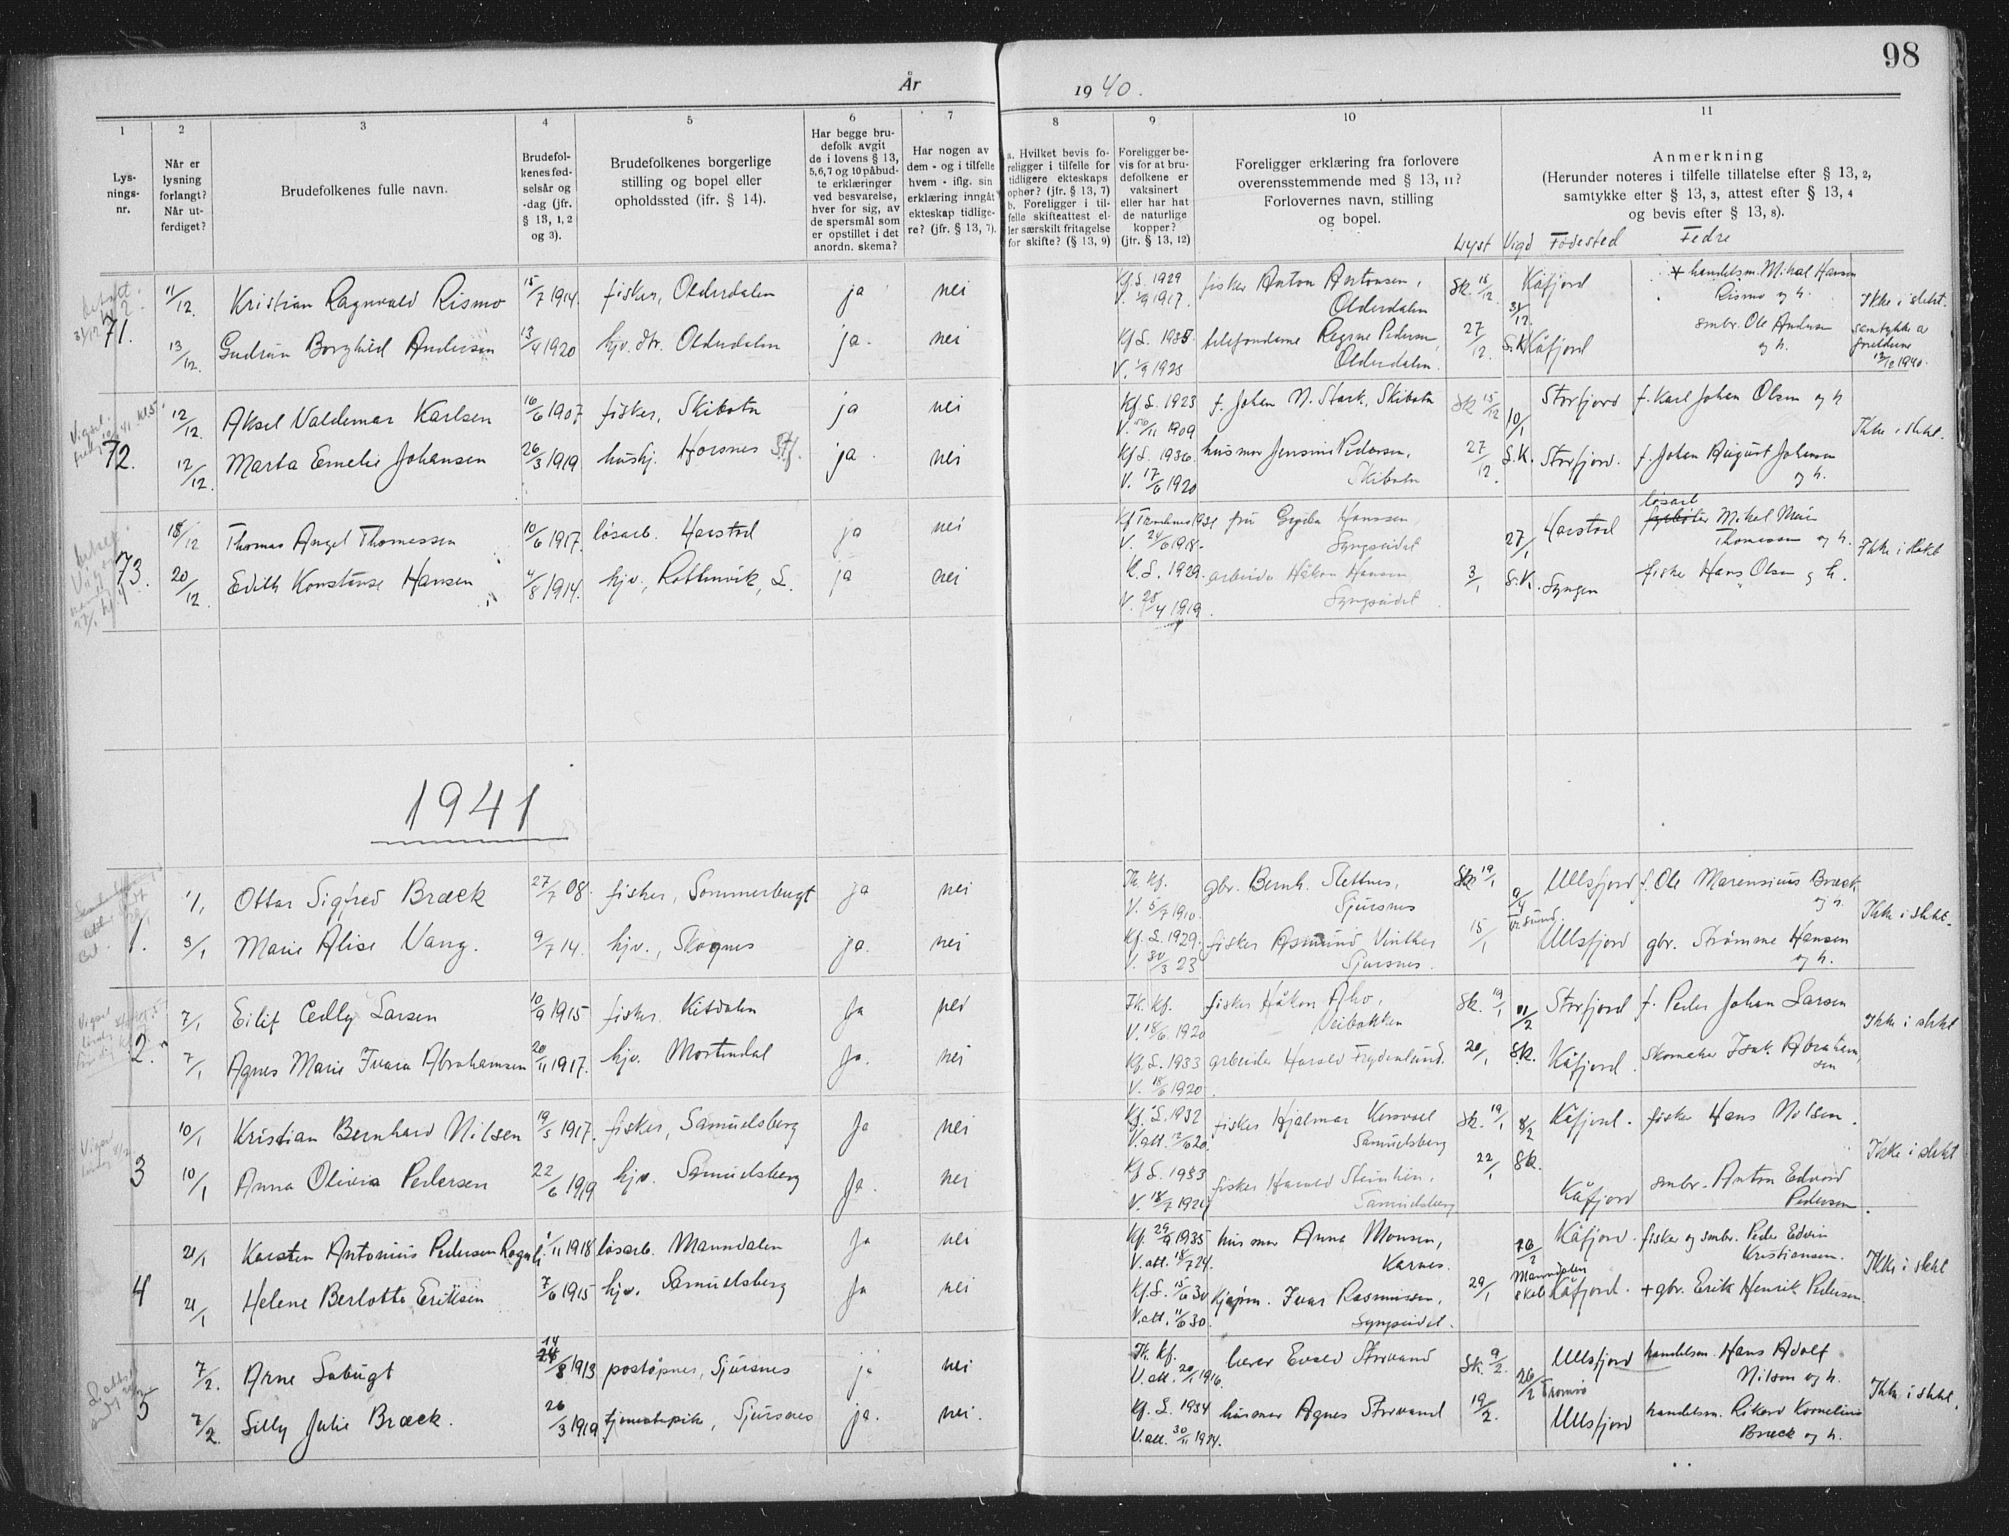 98
År 1940.
1 2 3 4 5 6 7 8 9 10 11
Lys-
nings-
nr.
Når er
lysning
forlangt?
Når ut-
ferdiget?
Brudefolkenes fulle navn.
Brudefol-
kenes fød-
selsår og
-dag (jfr.
§ 13, 1, 2
og 3).
Brudefolkenes borgerlige
stilling og bopel eller
opholdssted (jfr. § 14).
Har begge bru-
defolk avgit
de i lovens § 13,
5,6,7 og 10 påbud-
te erklæringer
ved besvarelse,
hver for sig, av
de spørsmål som
er opstillet i det
anordn. skema?
Har nogen av
dem - og i tilfelle
hvem - iflg. sin
erklæring inngått
ekteskap tidlige-
re? (jfr. § 13, 7).
a. Hvilket bevis fo-
religger i tilfelle for
tidligere ekteskaps
ophør? (jfr. § 13, 7)
b. Foreligger i til-
felle skifteattest el-
ler særskilt fritagelse
for skifte? (§ 13, 9)
Foreligger be-
vis for at bru-
defolkene er
vaksinert
eller har hat
de naturlige
kopper?
(jfr. § 13, 12)
Foreligger erklæring fra forlovere
overensstemmende med § 13, 11?
Forlovernes navn, stilling
og bopel.
Anmerkning
(Herunder noteres i tilfelle tillatelse efter § 13, 2,
samtykke efter § 13, 3, attest efter § 13, 4
og bevis efter § 13, 8).
Lyst Vigd Fødested Fedre
71. 11/12. Kristian Ragnvald Rismo 15/7 1914. fisker, Olderdalen ja nei Kf.L. 1929 fisker Anton Antonsen, Sk. 15/12. 31/12. Kåfjord + handelsm. Mikal Hansen
V. 1/9 1917. Olderdalen Rismo og h. Ikke i slekt.
13/12. Gudrun Borghild Andersen 13/4 1920 hjv. dtr. Olderdalen ja. nei Kf L. 1935 telefondame Regine Pedersen, 27/12. S.K. Kåfjord smbr. Ole Andersen
V. 1/9 1925 Olderdalen. og h. samtykke av
foreldrene
12/12 1940.
72. 12/12. Aksel Valdemar Karlsen 16/6 1907 fisker, Skibotn ja nei Kf. L. 1923 f. Johan N. Stark, Skibotn Sk 15/12 10/1 Storfjord f. Karl Johan Olsen og h
V. 10/11 1909 Ikke i slekt.
12/12. Marta Emelie Johansen 26/3 1919 hushj. Horsnes Stf. ja. nei Kf L. 1936. husmor Jensine Pedersen, 27/12. S.K. Storfjord. f. Johan August Johansen
V. 17/6 1920 Skibotn og h.
73. 18/12 Thomas Angel Thomassen 10/6 1917. løsarb. Harstad ja nei Kf Trondenes 1931 fru Hanssen, 27/1 Harstad løsarb. Mikal Meier
V. 24/6 1918. Lyngseidet Thomassen og h. Ikke i slekt
20/12. Edith Konstanse Hansen 4/8 1914. hjv., Rottenvik, L. ja nei K. L. 1929. arbeider Håkon Hansen, 3/1 S.K. Lyngen fisker Hans Olsen og h.
V. 25/4 1919. Lyngseidet
1941
1. 1/1 Ottar Sigfred Bræck 27/7 08. fisker, Sommerbugt ja nei Th. Kf. gbr. Bernh. Slettnes, Sk. 19/1 9/4 Ullsfjord f. Ole Marensius Bræck
V. 5/7 1910. Sjursnes Tr.sund. og h. Ikke i slekt.
3/1 Marie Alise Vang. 9/7 14. hjv., Skognes ja. nei Kf. L. 1929. fisker Asmund Vinther 15/1 Ullsfjord gbr. Strømme Hansen
V. 30/3 23 Sjursnes. og h.
2. 7/1 Eilif Cedly Larsen 10/9 1915 fisker. Kitdalen Ja nei Th. Kf. fisker Håkon Aho, Sk. 19/1 11/2 Storfjord f. Peder Johan Larsen
V. 18/6 1920 Veibakken Ikke i slekt
7/1 Agnes Marie Ivara Abrahamsen 20/11 1917. hjv. Mortendal Ja. nei Kf. L. 1933 arbeider Harald Frydenlund. 20/1 Sk. Kåfjord. skomaker Isak Abraham-
V. 18/6 1920. sen
3 10/1 Kristian Bernhard Nilsen 19/5 1917. fisker, Samuelsberg Ja nei Kf. L. 1932 fisker Hjalmar Sk. 19/1 8/2 Kåfjord. fisker Hans Nilsen.
V.att. 7/6 20. Samuelsberg Ikke i slekt
10/1 Anna Olivia Pedersen 22/6 1919 hjv. Samuelsberg Ja. nei Kf L. 1933 fisker Harald Steinlien, 22/1 Sk. Kåfjord smbr. Anton Edvard
V. 18/7 1920 Samuelsberg Pedersen.
4 21/1 Karsten Antonius Pedersen 1/11 1918 løsarb. Manndalen Ja nei Kf. 29/9 1935 husmor Anna Monsen, 26/2 Kåfjord. fisker og smbr. Peder Edvin
V.att. 18/7 24. Karnes. Manndalen Kristiansen. Ikke i slekt
21/1 Helene Berlotte Eriksen 7/6 1915 hjv. Samuelsberg Ja nei Kf.L. 15/6 30 Kjøpm. Ivar Rasmussen, 29/1 skole Kåfjord. + gbr. Erik Henrik Pedersen.
V.att. 11/6 30. Lyngseidet.
5 7/2. Arne Labugt 14/8 1913 postøpner, Sjursnes ja nei Th. Kf. lærer Evald Storvand Sk. 9/2. 26/2 Ullsfjord handelsm. Hans Adolf
V. att. 20/1 1916. Tromsø Nilsen og h. Ikke i slekt.
7/2. Silly Julie Bræck. 26/3 1919 tjenestepike, Sjursnes ja. nei. Kf. L. 1934 husmor Agnes Storvand 19/2. Ullsfjord handelsm. Rikard Kornelius
V.att. 30/11 1934. Bræck og h.